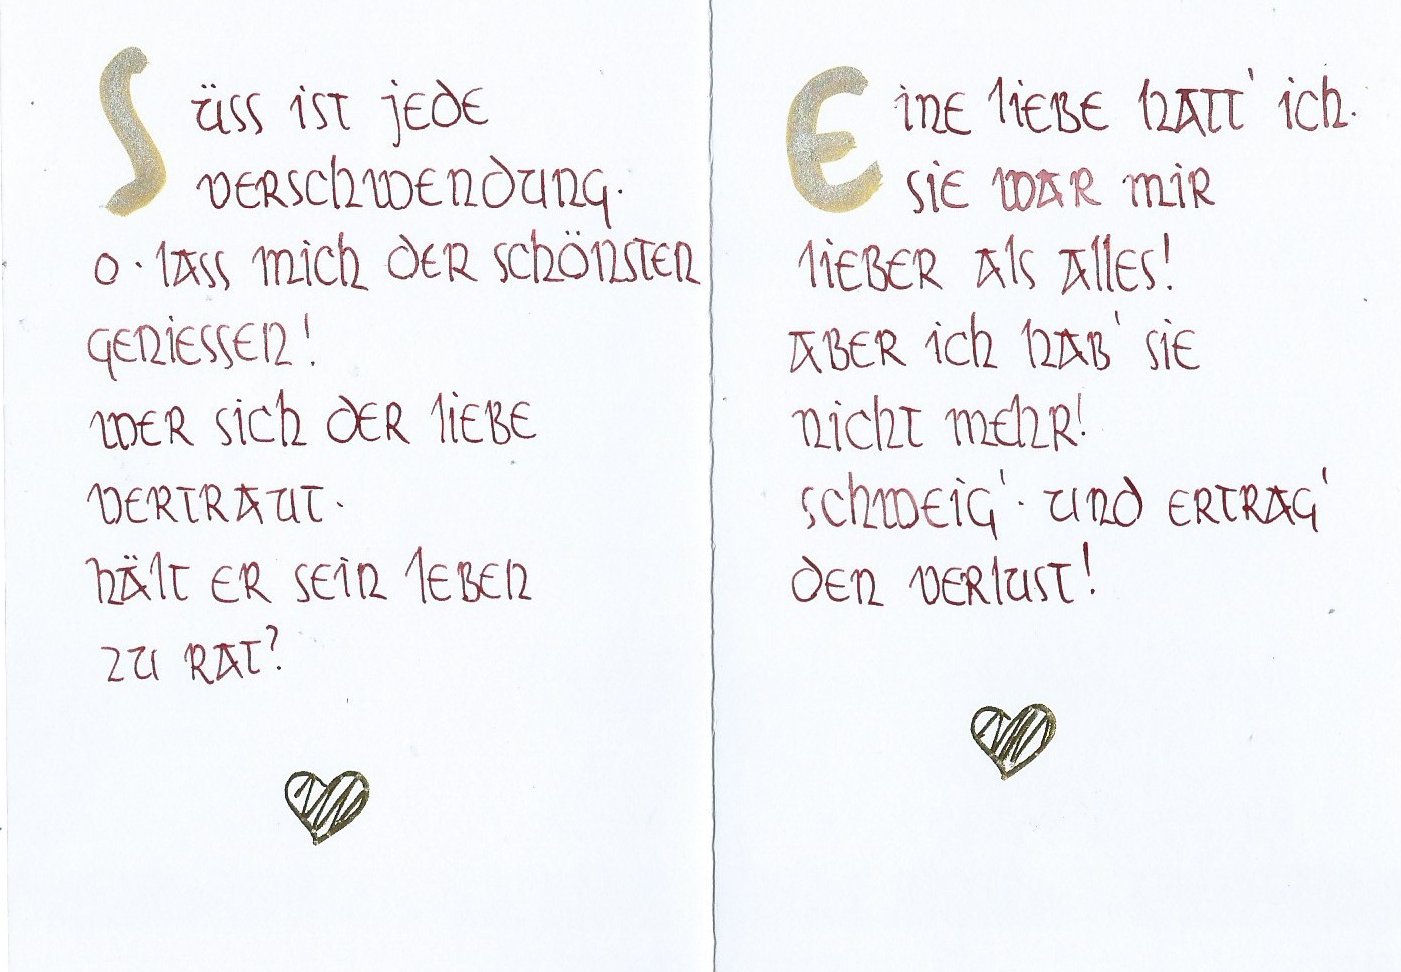 Süss ist jede
Verschwendung.
O. lass mich der schönsten
geniessen!
Wer sich der Liebe
vertraut.
hält er sein Leben
zu Rat?
Eine Liebe hatt' ich.
sie war mir
lieber als alles!
Aber ich hab' sie
nicht mehr!
Schweig'. und ertrag'
den Verlust!